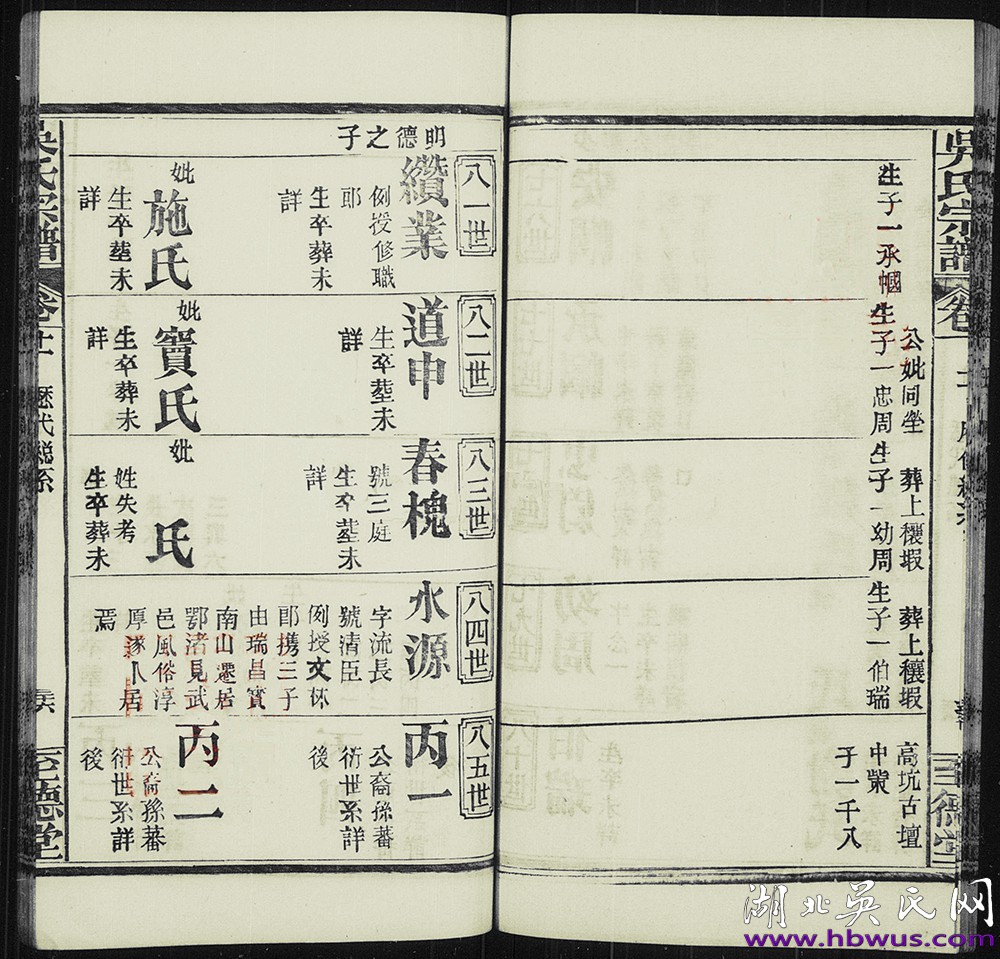 吳氏宗譜
卷十一
生子一承幗
生子一忠周
公妣同塋
生子一幼周
葬上穰塅
生子一伯瑞
葬上穰塅
高坑古壇
中業
子一千八
明德之子
八一世
纘業
例授修職
郎
生卒葬未
詳
妣
施氏
生卒塟未
詳
八二世
道申
生卒塟未
詳
妣
竇氏
生卒葬未
詳
八三世
春槐
號三庭
生卒塟未
詳
妣
氏
姓失考
生卒葬未
八四世
水源
字流長
號清臣
例授文林
郎携三子
由瑞昌實
南山遷居
鄂渚見武
邑風俗淳
厚遂人居
焉
八五世
丙一
公裔孫蕃
衍世系詳
後
丙二
公裔孫蕃
衍世系詳
後
吳氏宗譜
卷十一
歷代總系
至德堂
湖北吳氏网
www.hbwus.com